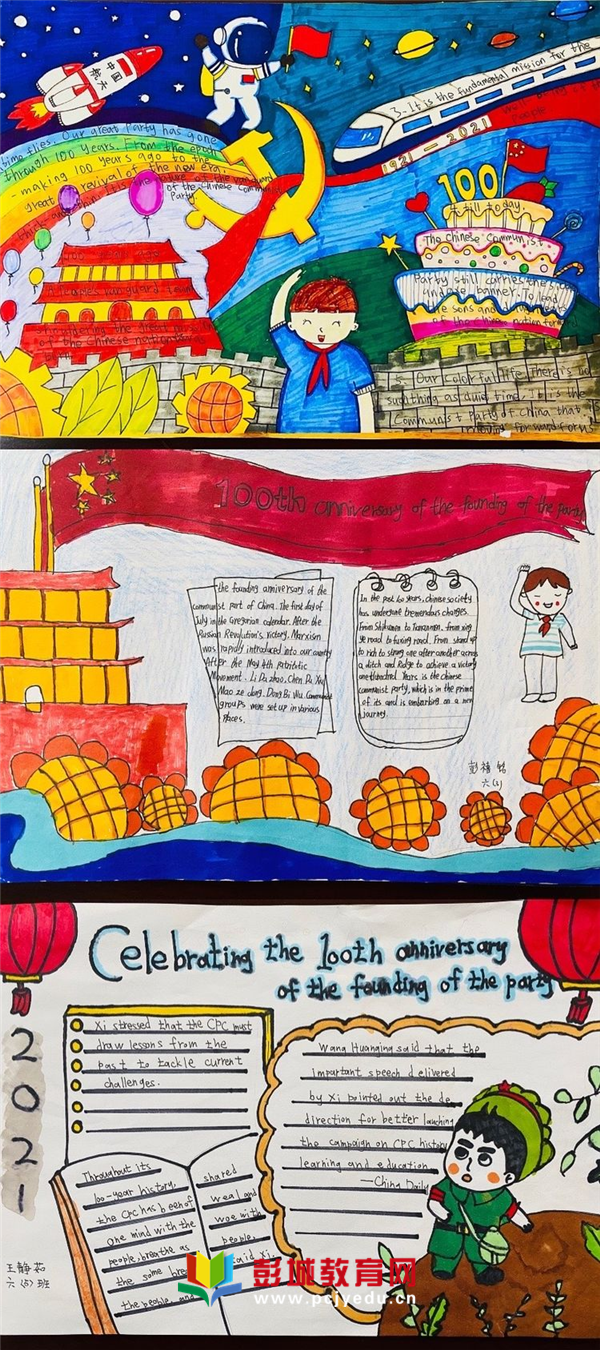 中国
航天
3. It is the fundamental mission for the
well being of the
people
1921 — 2021
time flies. Our great party has gone
through 100 years. From the epoch
- making 100 years ago to the
great revival of the new era.
of the Chinese Communist
Party
100
still today,
The Chinese Communist
Party still carries the
and banner. To lead
sons and
of the China nation
of the Chinese nation
5. Our colorful life. There's
time. It is the
Communist party of China that
forward for us
100th anniversary of the founding of the party
the founding anniversary of the
communist part of China. The first day of
July in the Gregorian calendar. After the
Russian Revolution's victory, Marxism
was rapidly introduced into our country
After the May 4th patriotic
Movement. Li Dazhao, Chen Du Xiu
Mao ze dong. Dong Bi Wu. Communist
groups were set up in various
places.
In the past 60 years, chinese society
has undergone tremendous changes.
From Shikumen to Tiananmen, from xing
ye road to fuxing road. From stand up
to rich to strong one after another across
a ditch and Ridge to achieve a victory
one Hundred Years is the chinese
communist party, which is in the prime
of its and is embarking on a new
journey.
六(5)
Celebrating the 100th anniversary
of the founding of the party
2021
Xi stressed that the CPC must
draw lessons from the
past to tackle current
challenges.
Wang Huanging said that the
important speech delivered
by Xi pointed out the de
direction for better launching
the campaign on CPC history
learning and education
—China Daily
Throughout its
100-year history,
the CPC has been of
one mind with the
people, breathe as
the same
the people, and
shared
weal and
woe with
people,
said Xi.
王静茹
六(5)班
彭城教育网
www.pcjyedu.cn